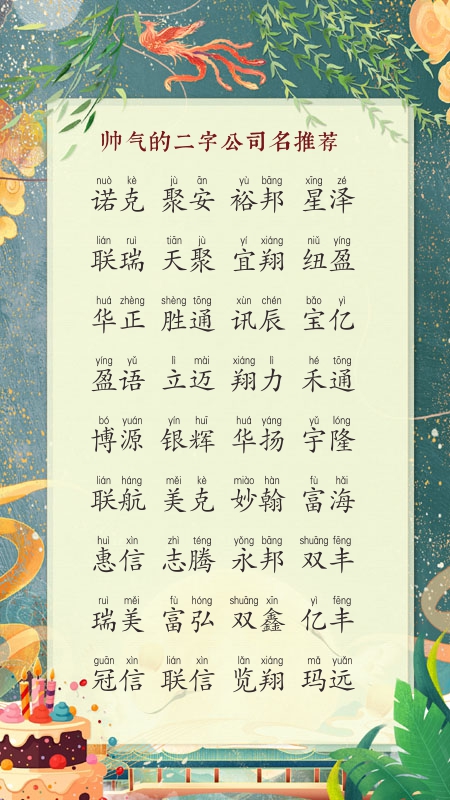 帅气的二字公司名推荐
nuò kè jù ān yù bāng xīng zé
诺克 聚安 裕邦 星泽
lián ruì tiān jù yí xiáng niǔ yíng
联瑞 天聚 宜翔 纽盈
huá zhèng shèng tōng xùn chén bǎo yì
华正 胜通 讯辰 宝亿
yíng yǔ lì mài xiáng lì hé tōng
盈语 立迈 翔力 禾通
bó yuán yín huī huá yáng yǔ lóng
博源 银辉 华扬 宇隆
lián háng měi kè miào hàn fù hǎi
联航 美克 妙翰 富海
huì xìn zhì téng yǒng bāng shuāng fēng
惠信 志腾 永邦 双丰
ruì měi fù hóng shuāng xīn yì fēng
瑞美 富弘 双鑫 亿丰
guān xìn lián xìn lǎn xiáng mǎ yuǎn
冠信 联信 览翔 玛远